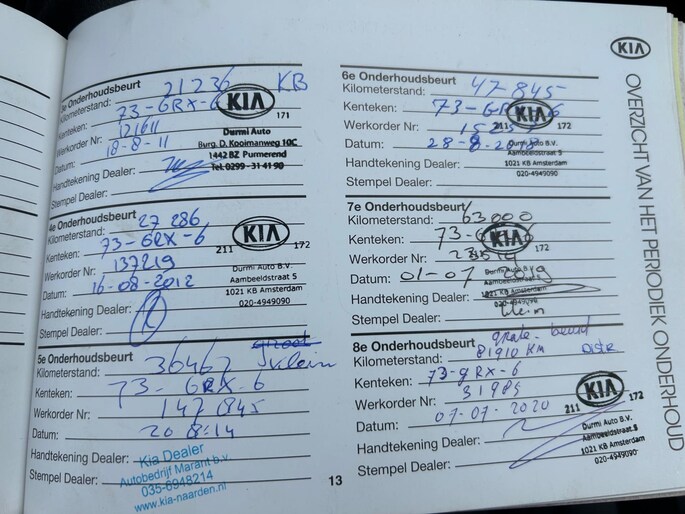 3e Onderhoudsbeurt
Kilometerstand: 21236 KB
Kenteken: 73-GRX-6
Werkorder Nr: 121611
Datum: 18-8-11
Handtekening Dealer:
Stempel Dealer:
KIA
171
Durmi Auto
Burg. D. Kooimanweg 10C
1442 BZ Purmerend
Tel. 0299-314190
4e Onderhoudsbeurt
Kilometerstand: 27286
Kenteken: 73-GRX-6
Werkorder Nr: 137219
Datum: 16-08-2012
Handtekening Dealer:
Stempel Dealer:
KIA
211 172
Durmi Auto B.V.
Aambeeldstraat 5
1021 KB Amsterdam
020-4949090
5e Onderhoudsbeurt
Kilometerstand: 36467 klein
Kenteken: 73-GRX-6
Werkorder Nr: 147845
Datum: 20 8-14
Handtekening Dealer:
Stempel Dealer:
Kia Dealer
Autobedrijf Marant b.v.
035-6948214
www.kia-naarden.nl
13
6e Onderhoudsbeurt
Kilometerstand: 47845
Kenteken: 73-GRX-6
Werkorder Nr:
Datum: 28-8-
Handtekening Dealer:
Stempel Dealer:
KIA
211 172
Durmi Auto B.V.
Aambeeldstraat 5
1021 KB Amsterdam
020-4949090
7e Onderhoudsbeurt
Kilometerstand: 63000
Kenteken: 73-
Werkorder Nr:
Datum: 01-07 2019
Handtekening Dealer:
Stempel Dealer: klein
KIA
172
Durmi Auto B.V.
Aambeeldstraat 5
1021 KB Amsterdam
020-4949090
8e Onderhoudsbeurt grote beurt
Kilometerstand: 81910 KM
Kenteken: 73-gRX-6
Werkorder Nr: 31985
Datum: 07-07-2020
Handtekening Dealer:
Stempel Dealer:
KIA
211 172
Durmi Auto B.V.
Aambeeldstraat 5
1021 KB Amsterdam
020-4949090
KIA
OVERZICHT VAN HET PERIODIEK ONDERHOUD